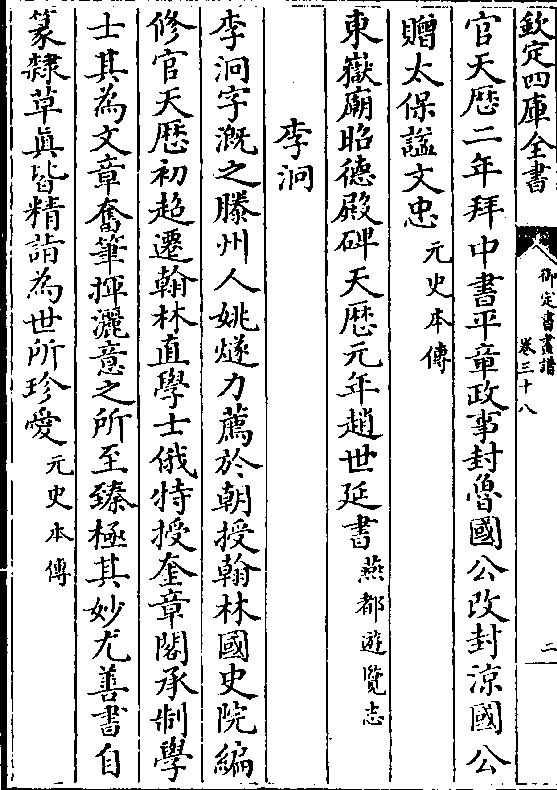 欽定四庫全書
御定書畫譜
卷三十八
二
官天歴二年拜中書平章政事封魯國公改封涼國公
贈太保諡文忠元史本傳
東嶽廟昭德殿碑天歴元年趙世延書燕都遊覽志
李泂
李泂字溉之滕州人姚燧力薦於朝授翰林國史院編
修官天歴初超遷翰林直學士俄特授奎章閣承制學
士其為文章奮筆揮灑意之所至臻極其妙尤善書自
篆隸草真皆精詣為世所珍愛元史本傳